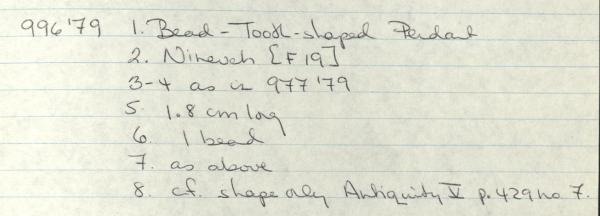 996'79 1. Bead-Tooth-shaped Pendant
2. Nineveh [F19]
3-4 as in 977'79
5. 1.8 cm long
6. 1 bead
7. as above
8. cf. shape only Antiquity V p.429 no 7.